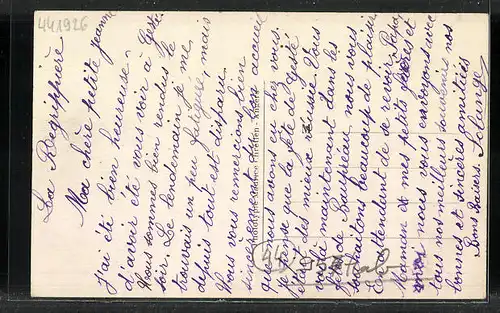 441926
La Regrippière
Ma chère petite Jeanne
J'ai été bien heureuse
d'avoir été vous voir à Gesté
Nous sommes bien rendus le
soir. Le lendemain je me
trouvais un peu fatiguée, mais
depuis tout est disparu.
Nous vous remercions bien
sincèrement du bon accueil
que nous avons eu chez vous.
je pense que la fête de Gesté
était des mieux réussie. Vous
voilà maintenant dans les
de Beaupreau nous vous
souhaitons beaucoup de plaisir
En attendant de se revoir Papa
Maman mes petits frères et
moi nous vous envoyons avec
tous nos meilleurs souvenirs nos
bonnes et sincères amitiés
Bons baisers Solange
44